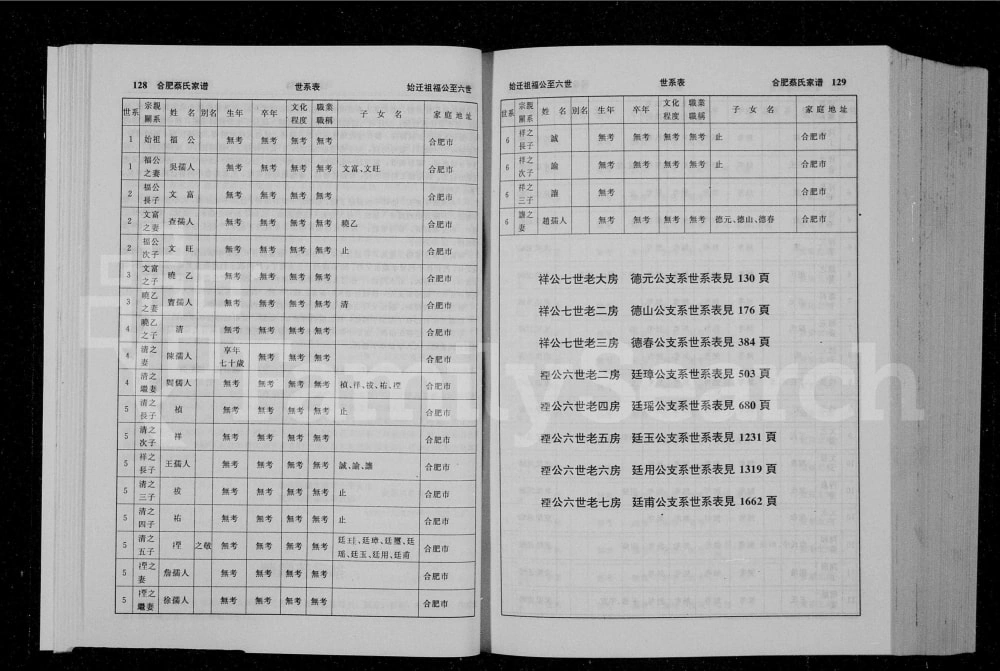 128 合肥蔡氏家谱 世系表 始迁祖福公至六世
世系 宗親關系 姓名 別名 生年 卒年 文化程度 職業職稱 子女名 家庭地址
1 始祖 福公 無考 無考 無考 無考 合肥市
1 福公之妻 吳孺人 無考 無考 無考 無考 文富、文旺 合肥市
2 福公長子 文富 無考 無考 無考 無考 合肥市
2 文富之妻 查孺人 無考 無考 無考 無考 曉乙 合肥市
2 福公次子 文旺 無考 無考 無考 無考 止 合肥市
3 文富之子 曉乙 無考 無考 無考 無考 合肥市
3 曉乙之妻 賈孺人 無考 無考 無考 無考 清 合肥市
4 曉乙之子 清 無考 無考 無考 無考 合肥市
4 清之妻 陳孺人 享年七十歲 無考 無考 無考 合肥市
4 清之繼妻 無考 無考 無考 無考 禎、祥、祓、祐、禋 合肥市
5 清之長子 禎 無考 無考 無考 無考 止 合肥市
5 清之次子 祥 無考 無考 無考 無考 合肥市
5 祥之妻 王孺人 無考 無考 無考 無考 誠、諭、讓 合肥市
5 清之三子 祓 無考 無考 無考 無考 止 合肥市
5 清之四子 祐 無考 無考 無考 無考 止 合肥市
5 清之五子 禋 之敬 無考 無考 無考 無考 廷玨、廷璋、廷璽、廷瑤、廷玉、廷用、廷甫 合肥市
5 禋之妻 詹孺人 無考 無考 無考 無考 合肥市
5 禋之繼妻 徐孺人 無考 無考 無考 無考 合肥市
始迁祖福公至六世 世系表 合肥蔡氏家谱 129
世系 宗親關系 姓名 別名 生年 卒年 文化程度 職業職稱 子女名 家庭地址
6 祥之長子 誠 無考 無考 無考 無考 止 合肥市
6 祥之次子 諭 無考 無考 無考 無考 止 合肥市
6 祥之三子 讓 無考 合肥市
6 讓之妻 趙孺人 無考 無考 無考 無考 德元、德山、德春 合肥市
祥公七世老大房 德元公支系世系表見 130 頁
祥公七世老二房 德山公支系世系表見 176 頁
祥公七世老三房 德春公支系世系表見 384 頁
禋公六世老二房 廷璋公支系世系表見 503 頁
禋公六世老四房 廷瑤公支系世系表見 680 頁
禋公六世老五房 廷玉公支系世系表見 1231 頁
禋公六世老六房 廷用公支系世系表見 1319 頁
禋公六世老七房 廷甫公支系世系表見 1662 頁
FamilySearch